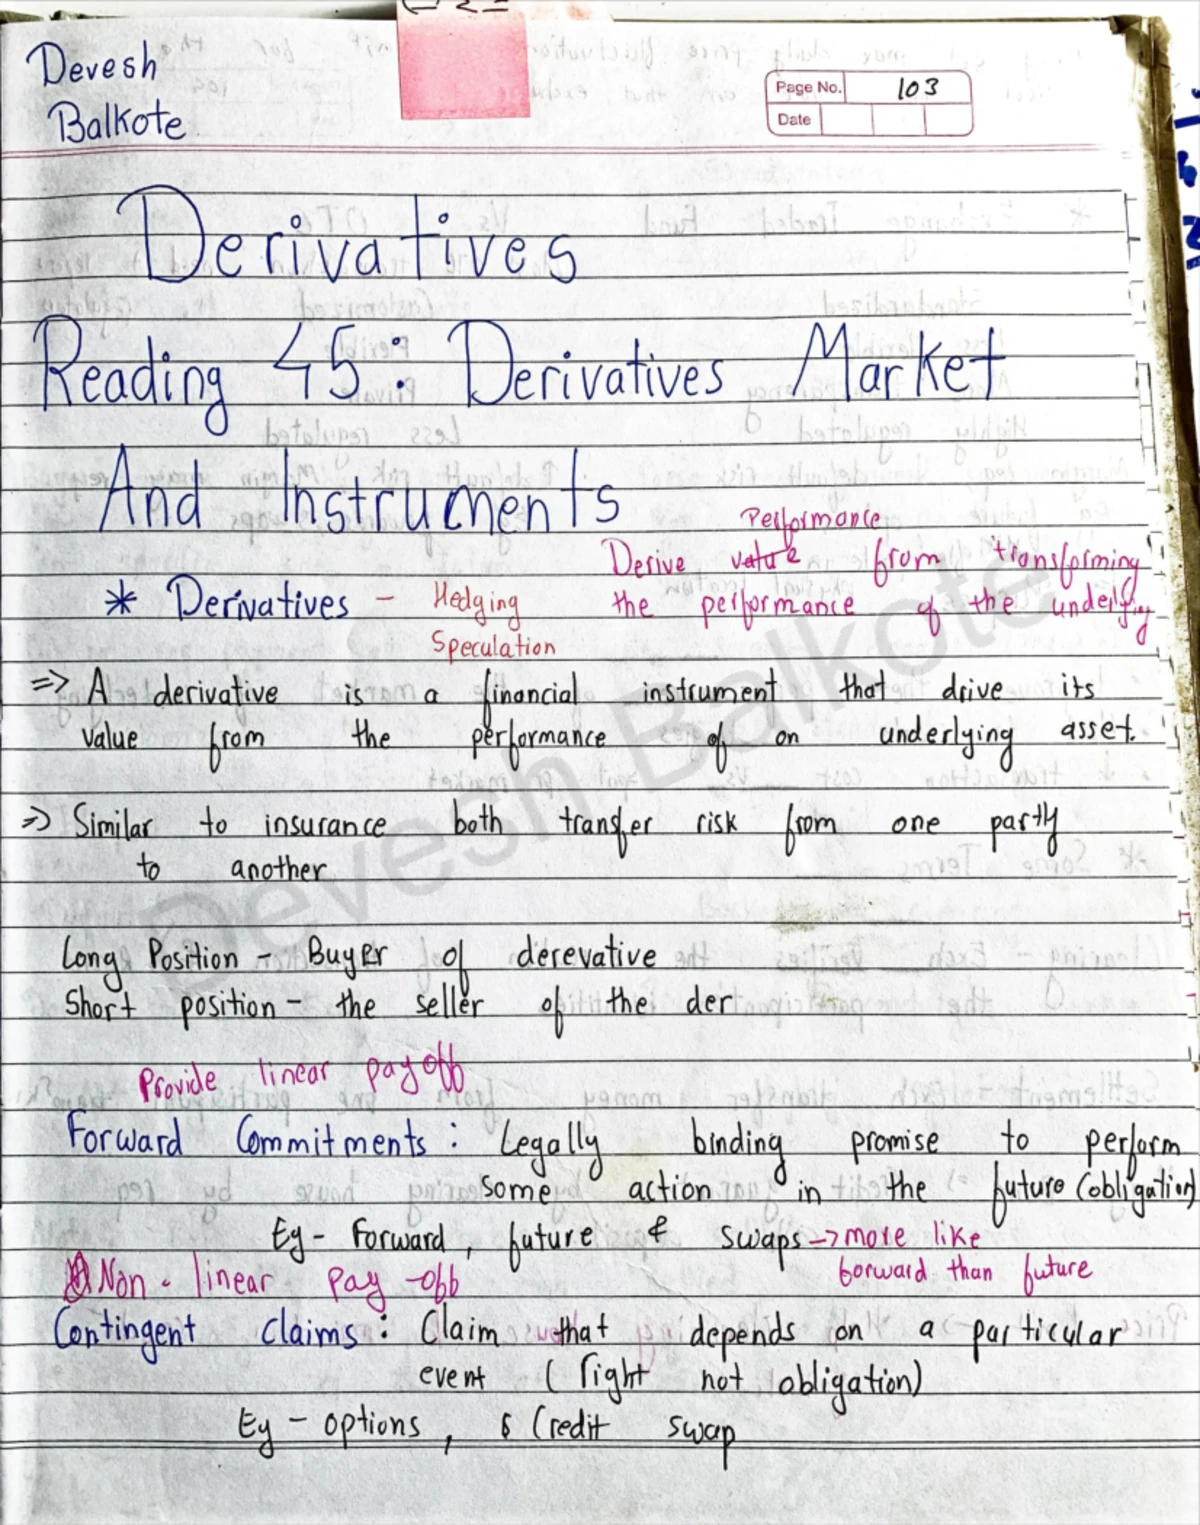 Devesh
Balkote
Page No. 103
Date
Derivatives
Reading 45: Derivatives Market
And Instruments
Performance
Derive value from transforming
the performance of the underlying
* Derivatives - Hedging
Speculation
=> A derivative is a financial instrument that drive its
value from the performance of on underlying asset.
=> Similar to insurance both transfer risk from one party
to another
Long Position - Buyer of derevative
Short position - the seller of the der
Provide linear pay off
Forward Commitments : Legally binding promise to perform
some action in the future (obligation)
Eg - Forward, future & swaps -> more like
forward than future
Non - linear pay -off
Contingent claims : Claim that depends on a particular
event (right not obligation)
Eg - options, & Credit swap
Devesh Balkote